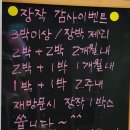 장작 감사이벤트
3박이상 / 장박 제외
2박 + 2박 2개월내
2박 + 1박 1개월내
1박 + 1박 2주내
재방문시 장작 1박스
쏩니다 ~ ^^